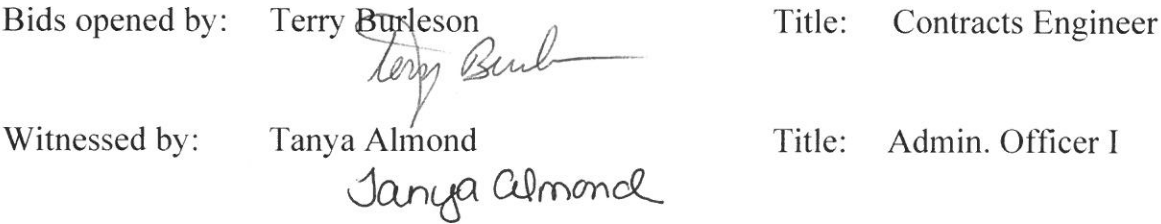 Bids opened by: Terry Burleson Title: Contracts Engineer
Terry Burl
Witnessed by: Tanya Almond Title: Admin. Officer I
Tanya Almond